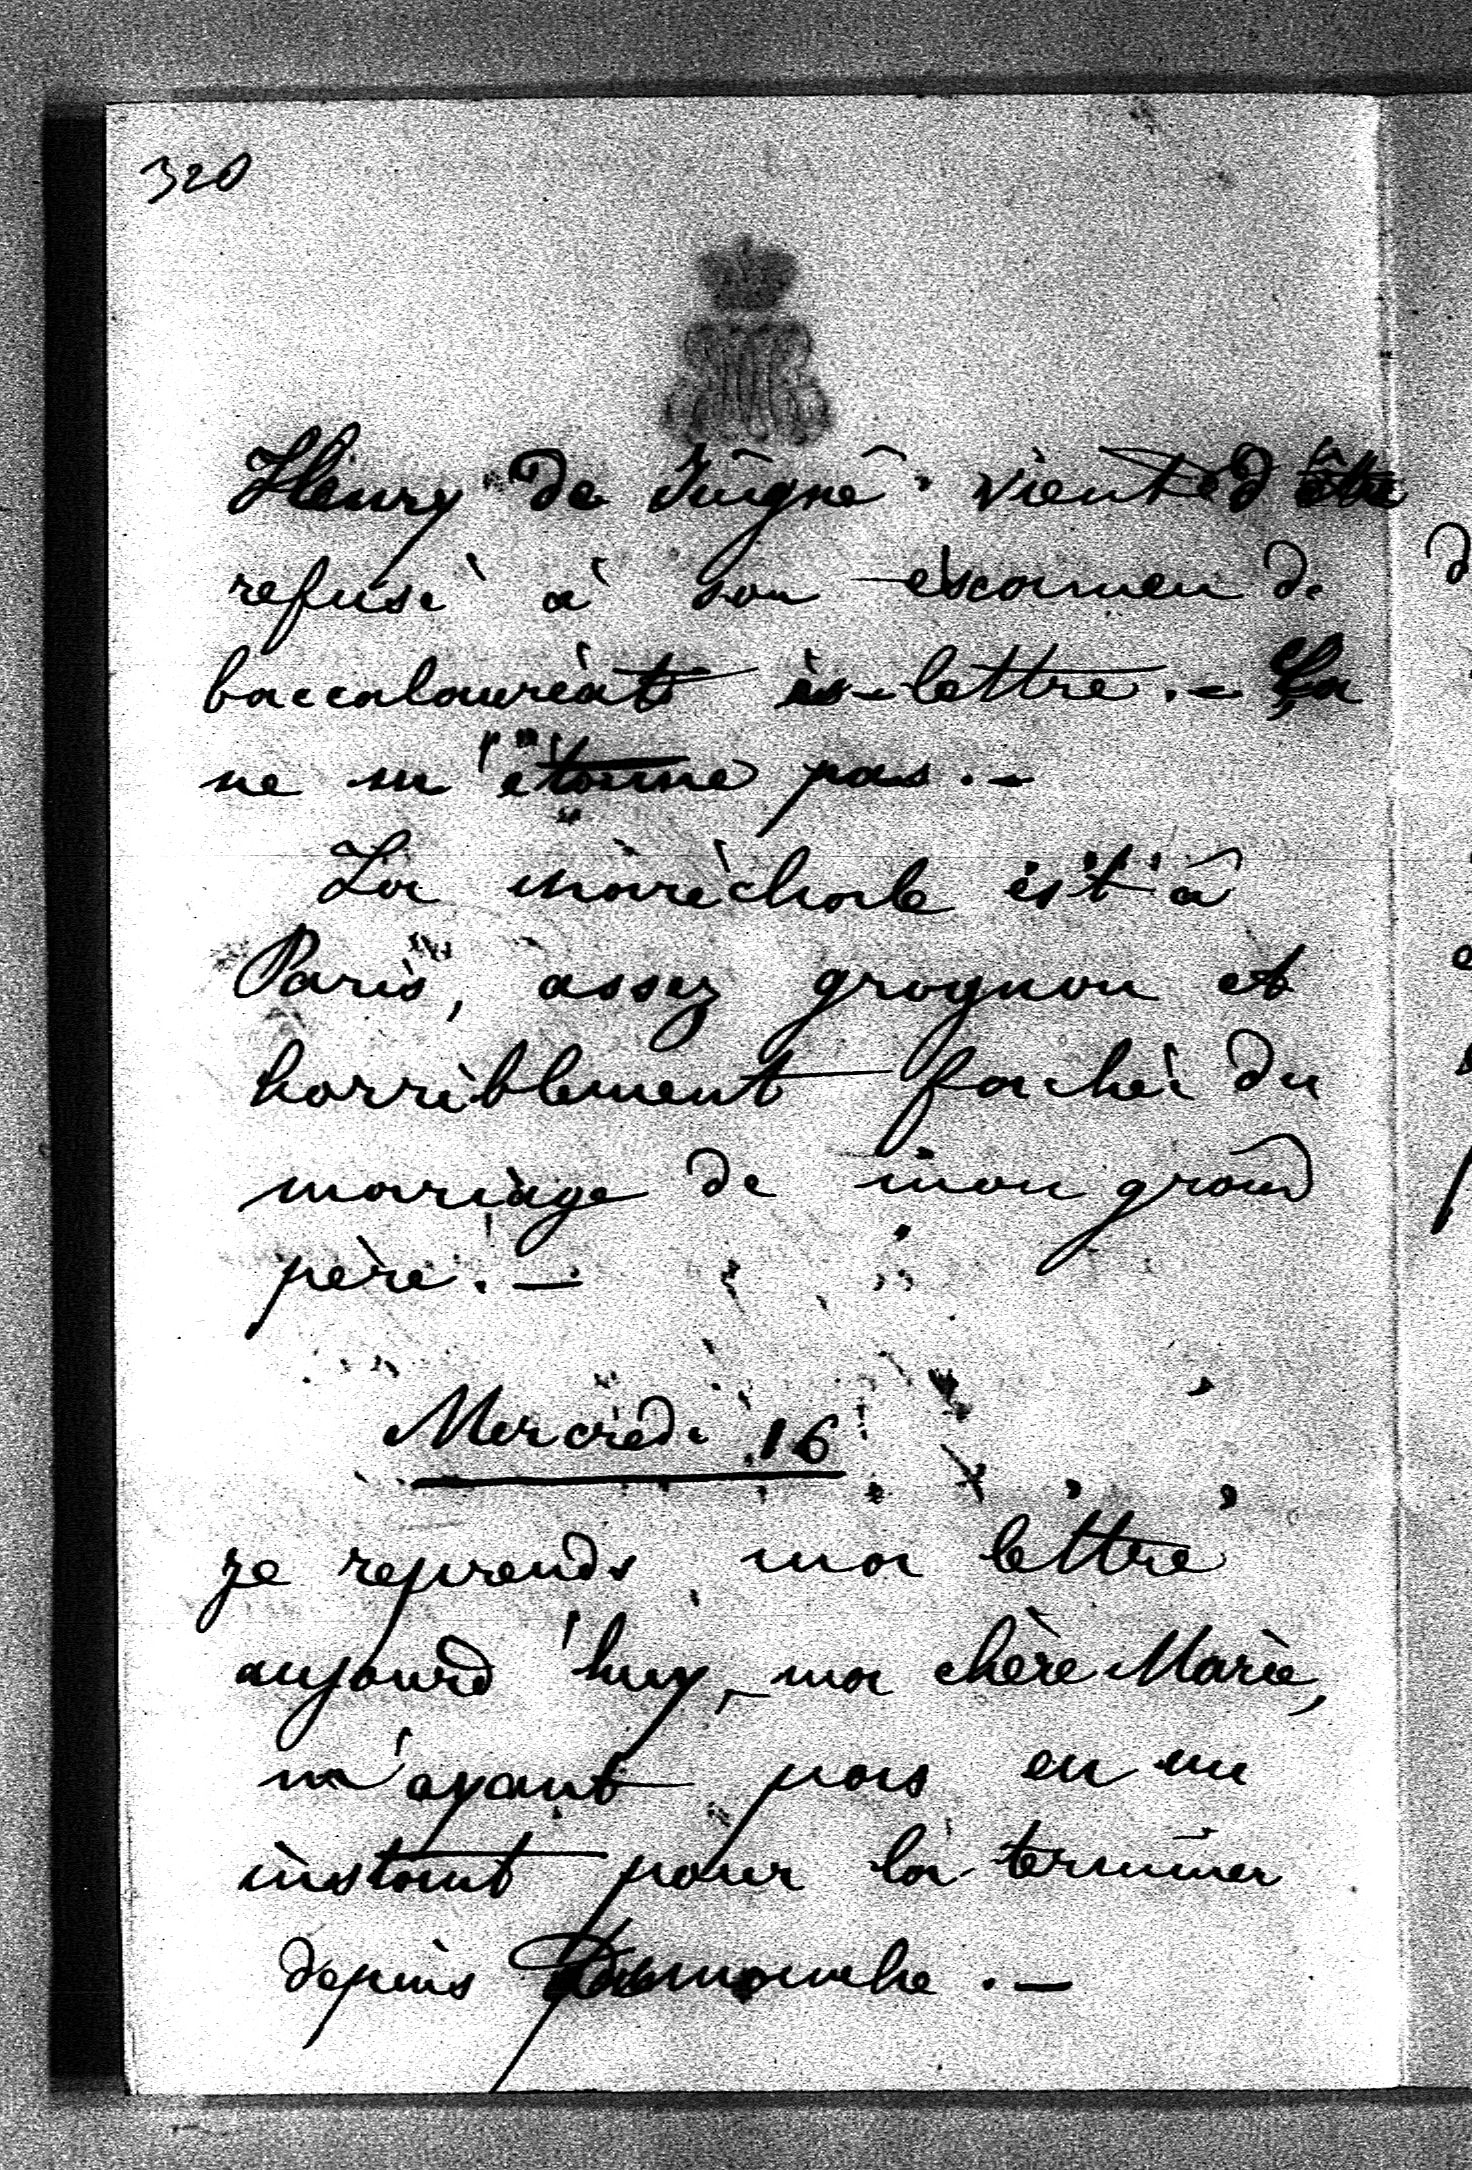 320
Henry de Juigné vient d'être
refusé à son examen de
baccalauréat ès-lettre. – Ça
ne m'étonne pas. –
La maréchale est à
Paris, assez grognon et
horriblement fachée du
mariage de mon grand
père. –
Mercredi 16
je reprends ma lettre
aujourd'huy, ma chère Marie,
n'ayant pas eu un
instant pour la terminer
depuis Dimanche. –